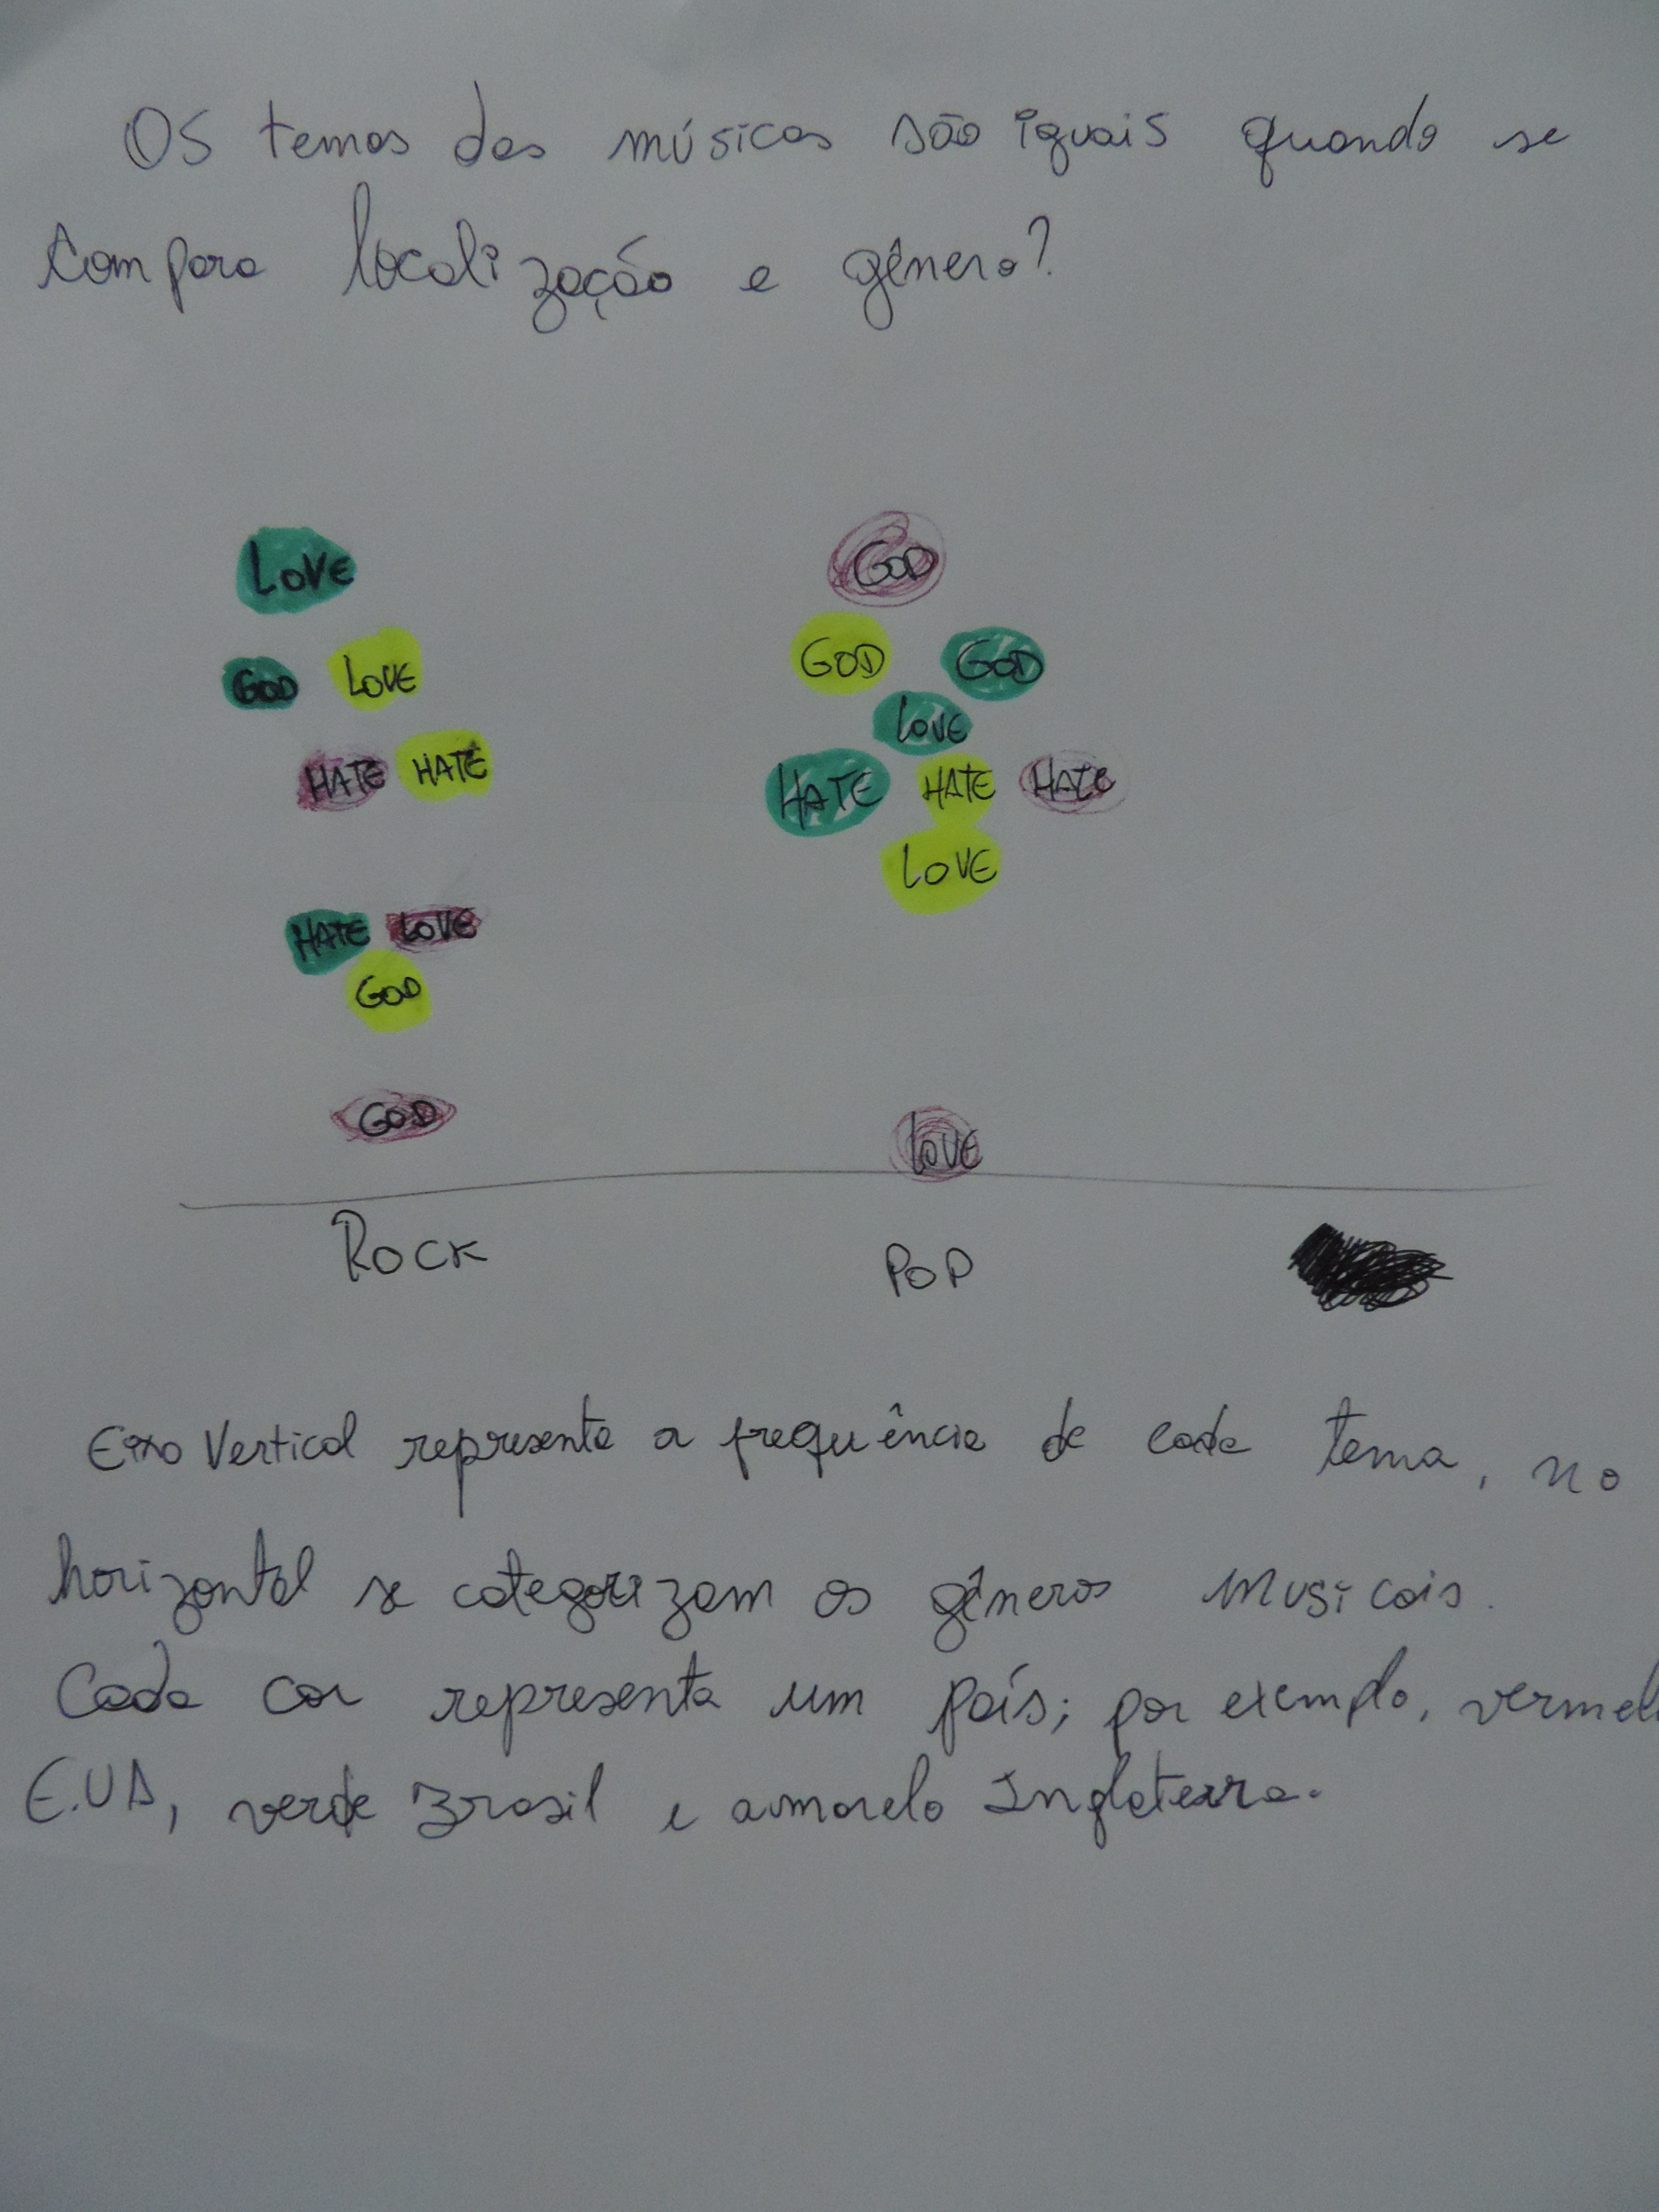 Os temas das músicas são iguais quando se
compara localização e gênero?
LOVE
GOD
GOD LOVE
GOD GOD
LOVE
HATE HATE
HATE HATE HATE
LOVE
HATE LOVE
GOD
GOD
LOVE
ROCK POP
Eixo Vertical representa a frequência de cada tema, no
horizontal se categorizam os gêneros musicais.
Cada cor representa um país; por exemplo, vermel
E.UA, verde Brasil e amarelo Inglaterra.